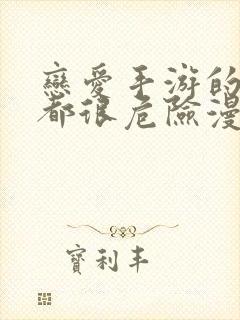 戀愛手游的
都很危險漫
寶利丰